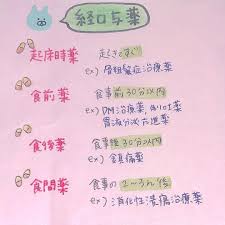 経口与薬
起床時薬 起きてすぐ
ex) 骨粗鬆症治療薬
食前薬 食事前30分以内
ex) DM治療薬、制吐薬
胃液分泌薬
食後薬 食事後30分以内
ex)
食間薬 食事の2〜3h後
ex) 消化性潰瘍治療薬